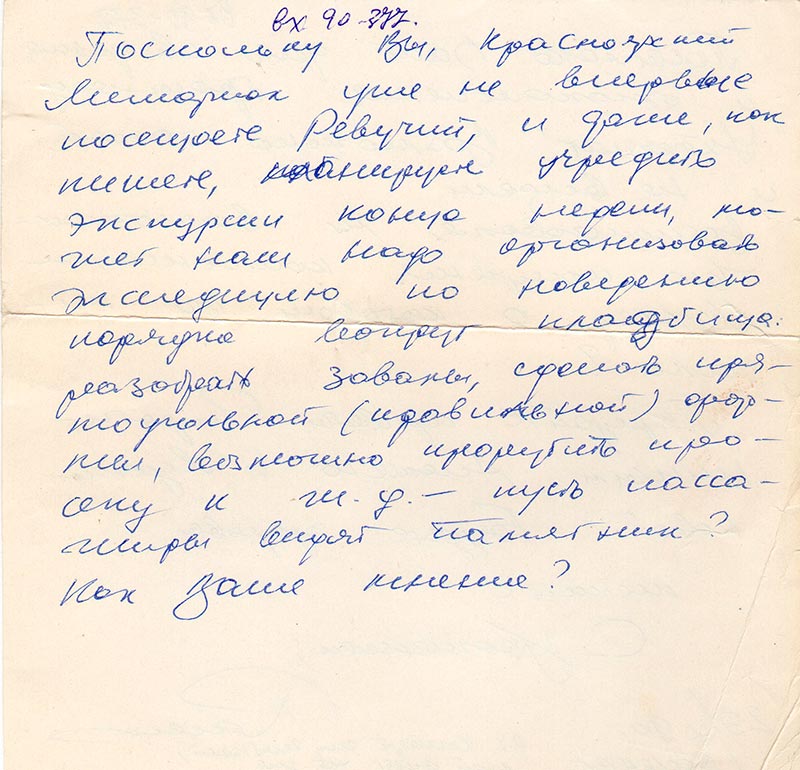 вх 90-377.
Поскольку Вы, Красноярский
Мемориал уже не впервые
посещаете Ревучий, и даже, как
пишете, планируете учредить
экскурсии конца недели, мо-
жет нам надо организовать
экспедицию по наведению
порядка вокруг кладбища:
разобрать завалы, сделать пря-
моугольной (правильной) фор-
мы, возможно прорубить про-
секу к ж.д. - пусть пасса-
жиры видят памятник?
Как Ваше мнение?